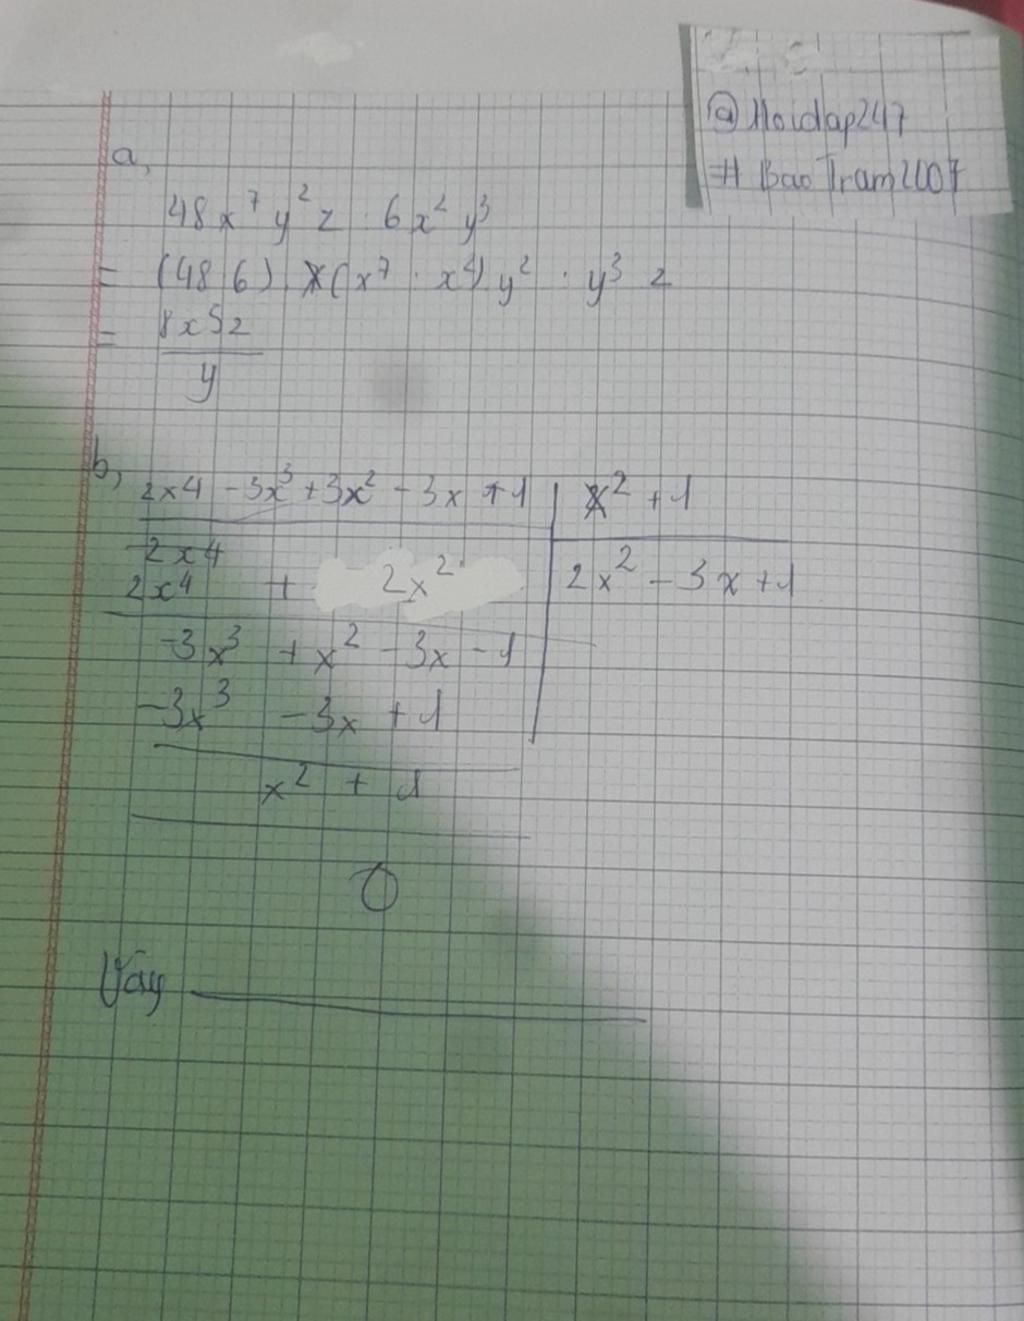 @Hoidap247
# BaoTram2007
a,
48x⁷y²z : 6x²y³
= (48:6) . (x⁷ : x²) y² : y³ z
= 8x5z
y
b,
2x4 - 3x³ + 3x² - 3x + 1 | x² + 1
2x4
2x⁴ + 2x² | 2x² - 3x + 1
-3x³ + x² - 3x - 1
-3x³ - 3x + 1
x² + 1
0
Vây